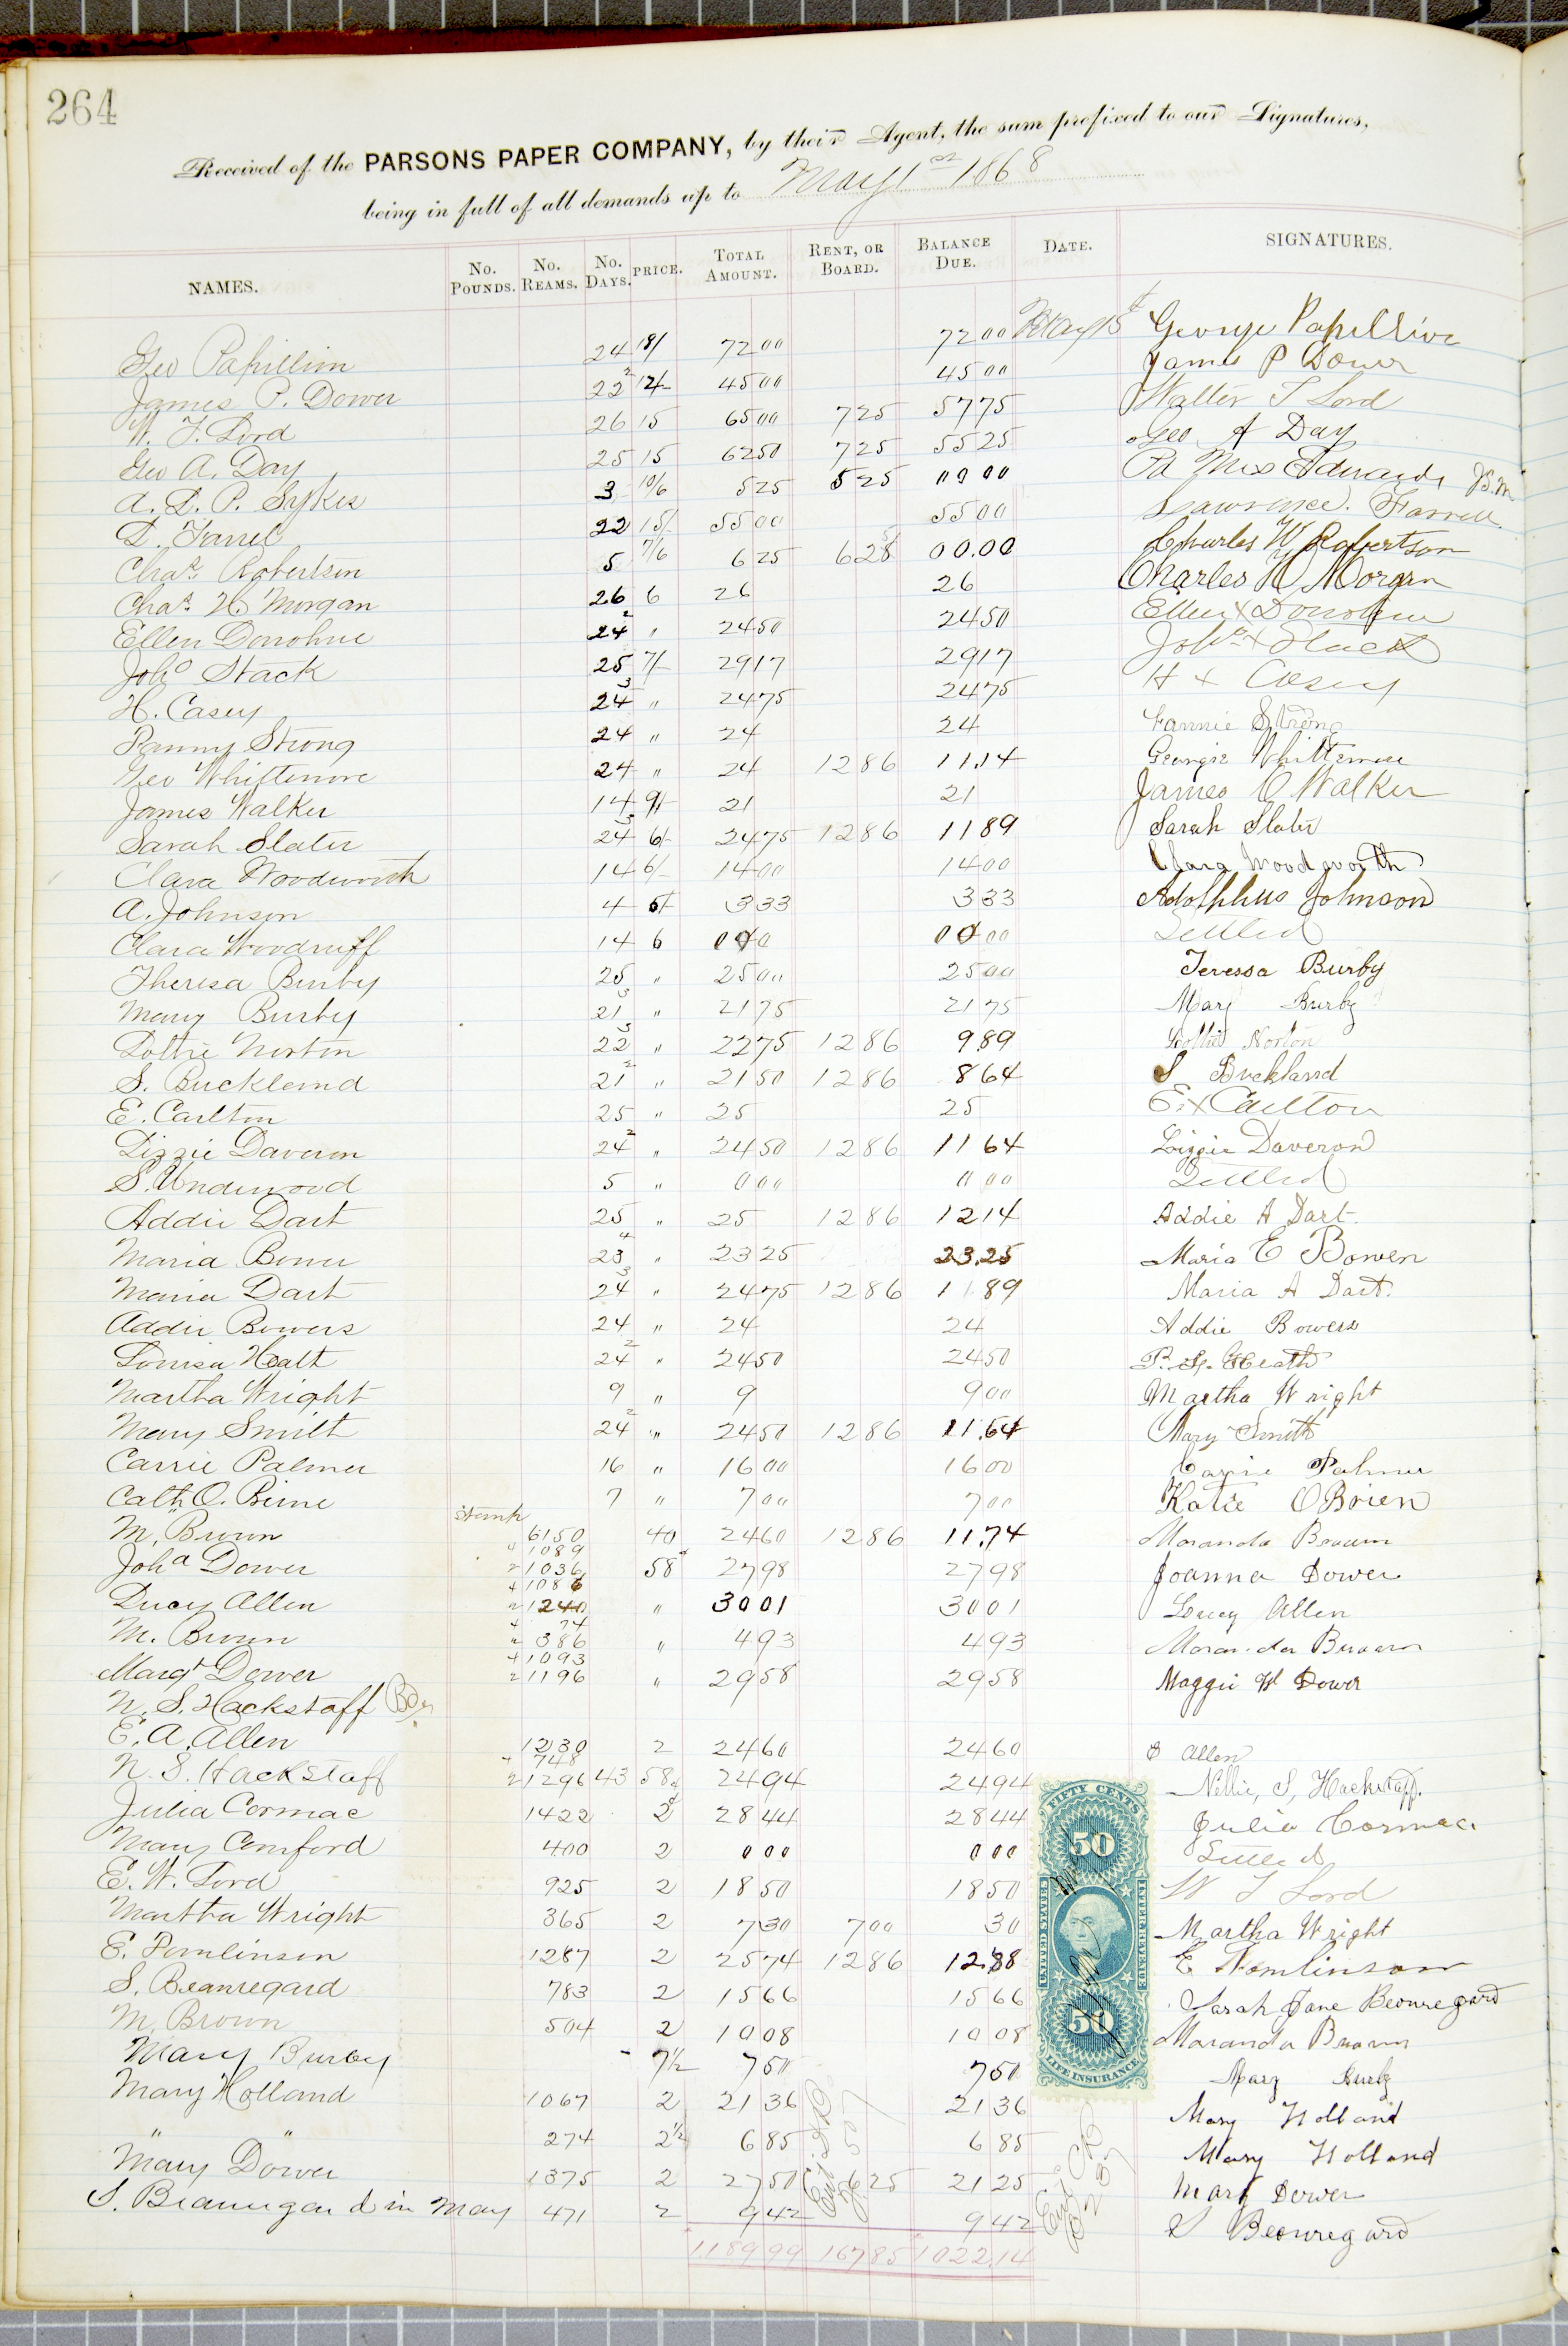 264
Received of the PARSONS PAPER COMPANY, by their Agent, the sum prefixed to our Signatures,
being in full of all demands up to May 1st 1868
NAMES. No. POUNDS. No. REAMS. No. DAYS. PRICE. TOTAL AMOUNT. RENT, OR BOARD. BALANCE DUE. DATE. SIGNATURES.
Geo Papillion 24 18/ 72 00 72 00 May 15 George Papillion
James P. Dower 22 2 12/- 45 00 45 00 James P Dower
W. T. Lord 26 15 65 00 7 25 57 75 Walter T Lord
Geo A. Day 25 15 62 50 7 25 55 25 Geo A Day
A. L. P. Sykes 3 10/6 5 25 5 25 00 00 Pd Mrs Edwards
L. Farrel 22 15/- 55 00 55 00 Lawrence Farrell
Chas. Robertson 5 7/6 6 25 6 25 00.00 Charles W Robertson
Chas. H. Morgan 26 6 26 26 Charles H Morgan
Ellen Donohue 24 2 " 24 50 24 50 Ellen X Donohue
Joho Stack 25 7/- 29 17 29 17 Joho X Stack
H. Casey 24 3 " 24 75 24 75 H X Casey
Fanny Strong 24 " 24 24 Fannie Strong
Geo Whittemore 24 " 24 12 86 11.14 Georgie Whittemore
James Walker 14 9/- 21 21 James O Walker
Sarah Slater 24 3 6/- 24 75 12 86 11 89 Sarah Slater
Clara Woodworth 14 6/- 14 00 14 00 Clara Woodworth
A. Johnson 4 5/ 3 33 3 33 Adolphus Johnson
Clara Woodruff 14 6 0 00 00 00 Settled
Theresa Burby 25 " 25 00 25 00 Teressa Burby
Mary Burby 21 3 " 21 75 21 75 Mary Burby
Lottie Norton 22 3 " 22 75 12 86 9.89 Lottie Norton
S. Buckland 21 2 " 21 50 12 86 8 64 S Buckland
E. Carlton 25 " 25 25 E. X Carlton
Lizzie Daveron 24 2 " 24 50 12 86 11 64 Lizzie Daveron
S. Underwood 5 " 0 00 0 00 Settled
Addie Dart 25 " 25 12 86 12 14 Addie A Dart
Maria Bowen 23 4 " 23 25 23.25 Maria E Bowen
Maria Dart 24 3 " 24 75 12 86 11 89 Maria A Dart.
Addie Bowers 24 " 24 24 Addie Bowers
Louisa Healt 24 2 " 24 50 24 50 Heath
Martha Wright 9 " 9 9 00 Martha Wright
Mary Smilt 24 2 " 24 50 12 86 11.64 Mary Smith
Carrie Palmer 16 " 16 00 16 00 Carrie Palmer
Cath O. Brine 7 " 7 00 7 00 Katie O Brien
M. Brown stamp 6150 40 24 60 12 86 11.74 Maranda Brown
Joha Dower 4 1089 2 1036 58 27 98 27 98 Joanna Dower
Lucy Allen 4 1086 2 1240 " 30 01 30 01 Lucy Allen
M. Brown 4 74 2 386 " 4 93 4 93 Maranda Brown
Margt Dower 4 1093 2 1196 " 29 58 29 58 Maggie W Dower
N. S. Hackstaff
E. A. Allen 1230 2 24 60 24 60 E Allen
N. S. Hackstaff 4 748 2 1296 43 58 24 94 24 94 Nellie, S, Hackstaff.
Julia Cormac 1422 2 28 44 28 44 Julia Cormac
Mary Comford 400 2 0 00 0 00 Settled
E. W. Lord 925 2 18 50 18 50 W T Lord
Martha Wright 365 2 7 30 7 00 30 Martha Wright
E. Tomlinson 1287 2 25 74 12 86 12.88 E Tomlinson
S. Beauregard 783 2 15 66 15 66 Sarah Jane Beauregard
M. Brown 504 2 10 08 10 08 Maranda Brown
Mary Burby - 7 1/2 7 50 7 50 Mary Burby
Mary Holland 1067 2 21 36 21 36 Mary Holland
" " 274 2 1/2 6 85 6 85 Mary Holland
Mary Dower 1375 2 27 50 6 25 21 25 Mary Dower
S. Beauregard in May 471 2 9 42 9 42 S Beauregard
1189 99 167 85 1022.14
FIFTY CENTS
50
UNITED STATES
INTER. REVENUE
50
LIFE INSURANCE